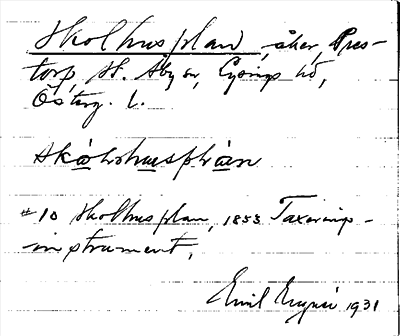 Skolhusplan, åker, Pres-
torp, St. Åby sn, Lysings hd,
Österg. l.
skɷ̄lshusplɑ̄n
#10 Skolhusplan, 1853 Taxerings-
instrument.
Emil 1931